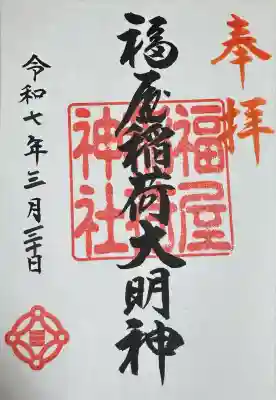 奉拝
福屋稲荷大明神
福屋稲荷神社
令和七年三月三十日